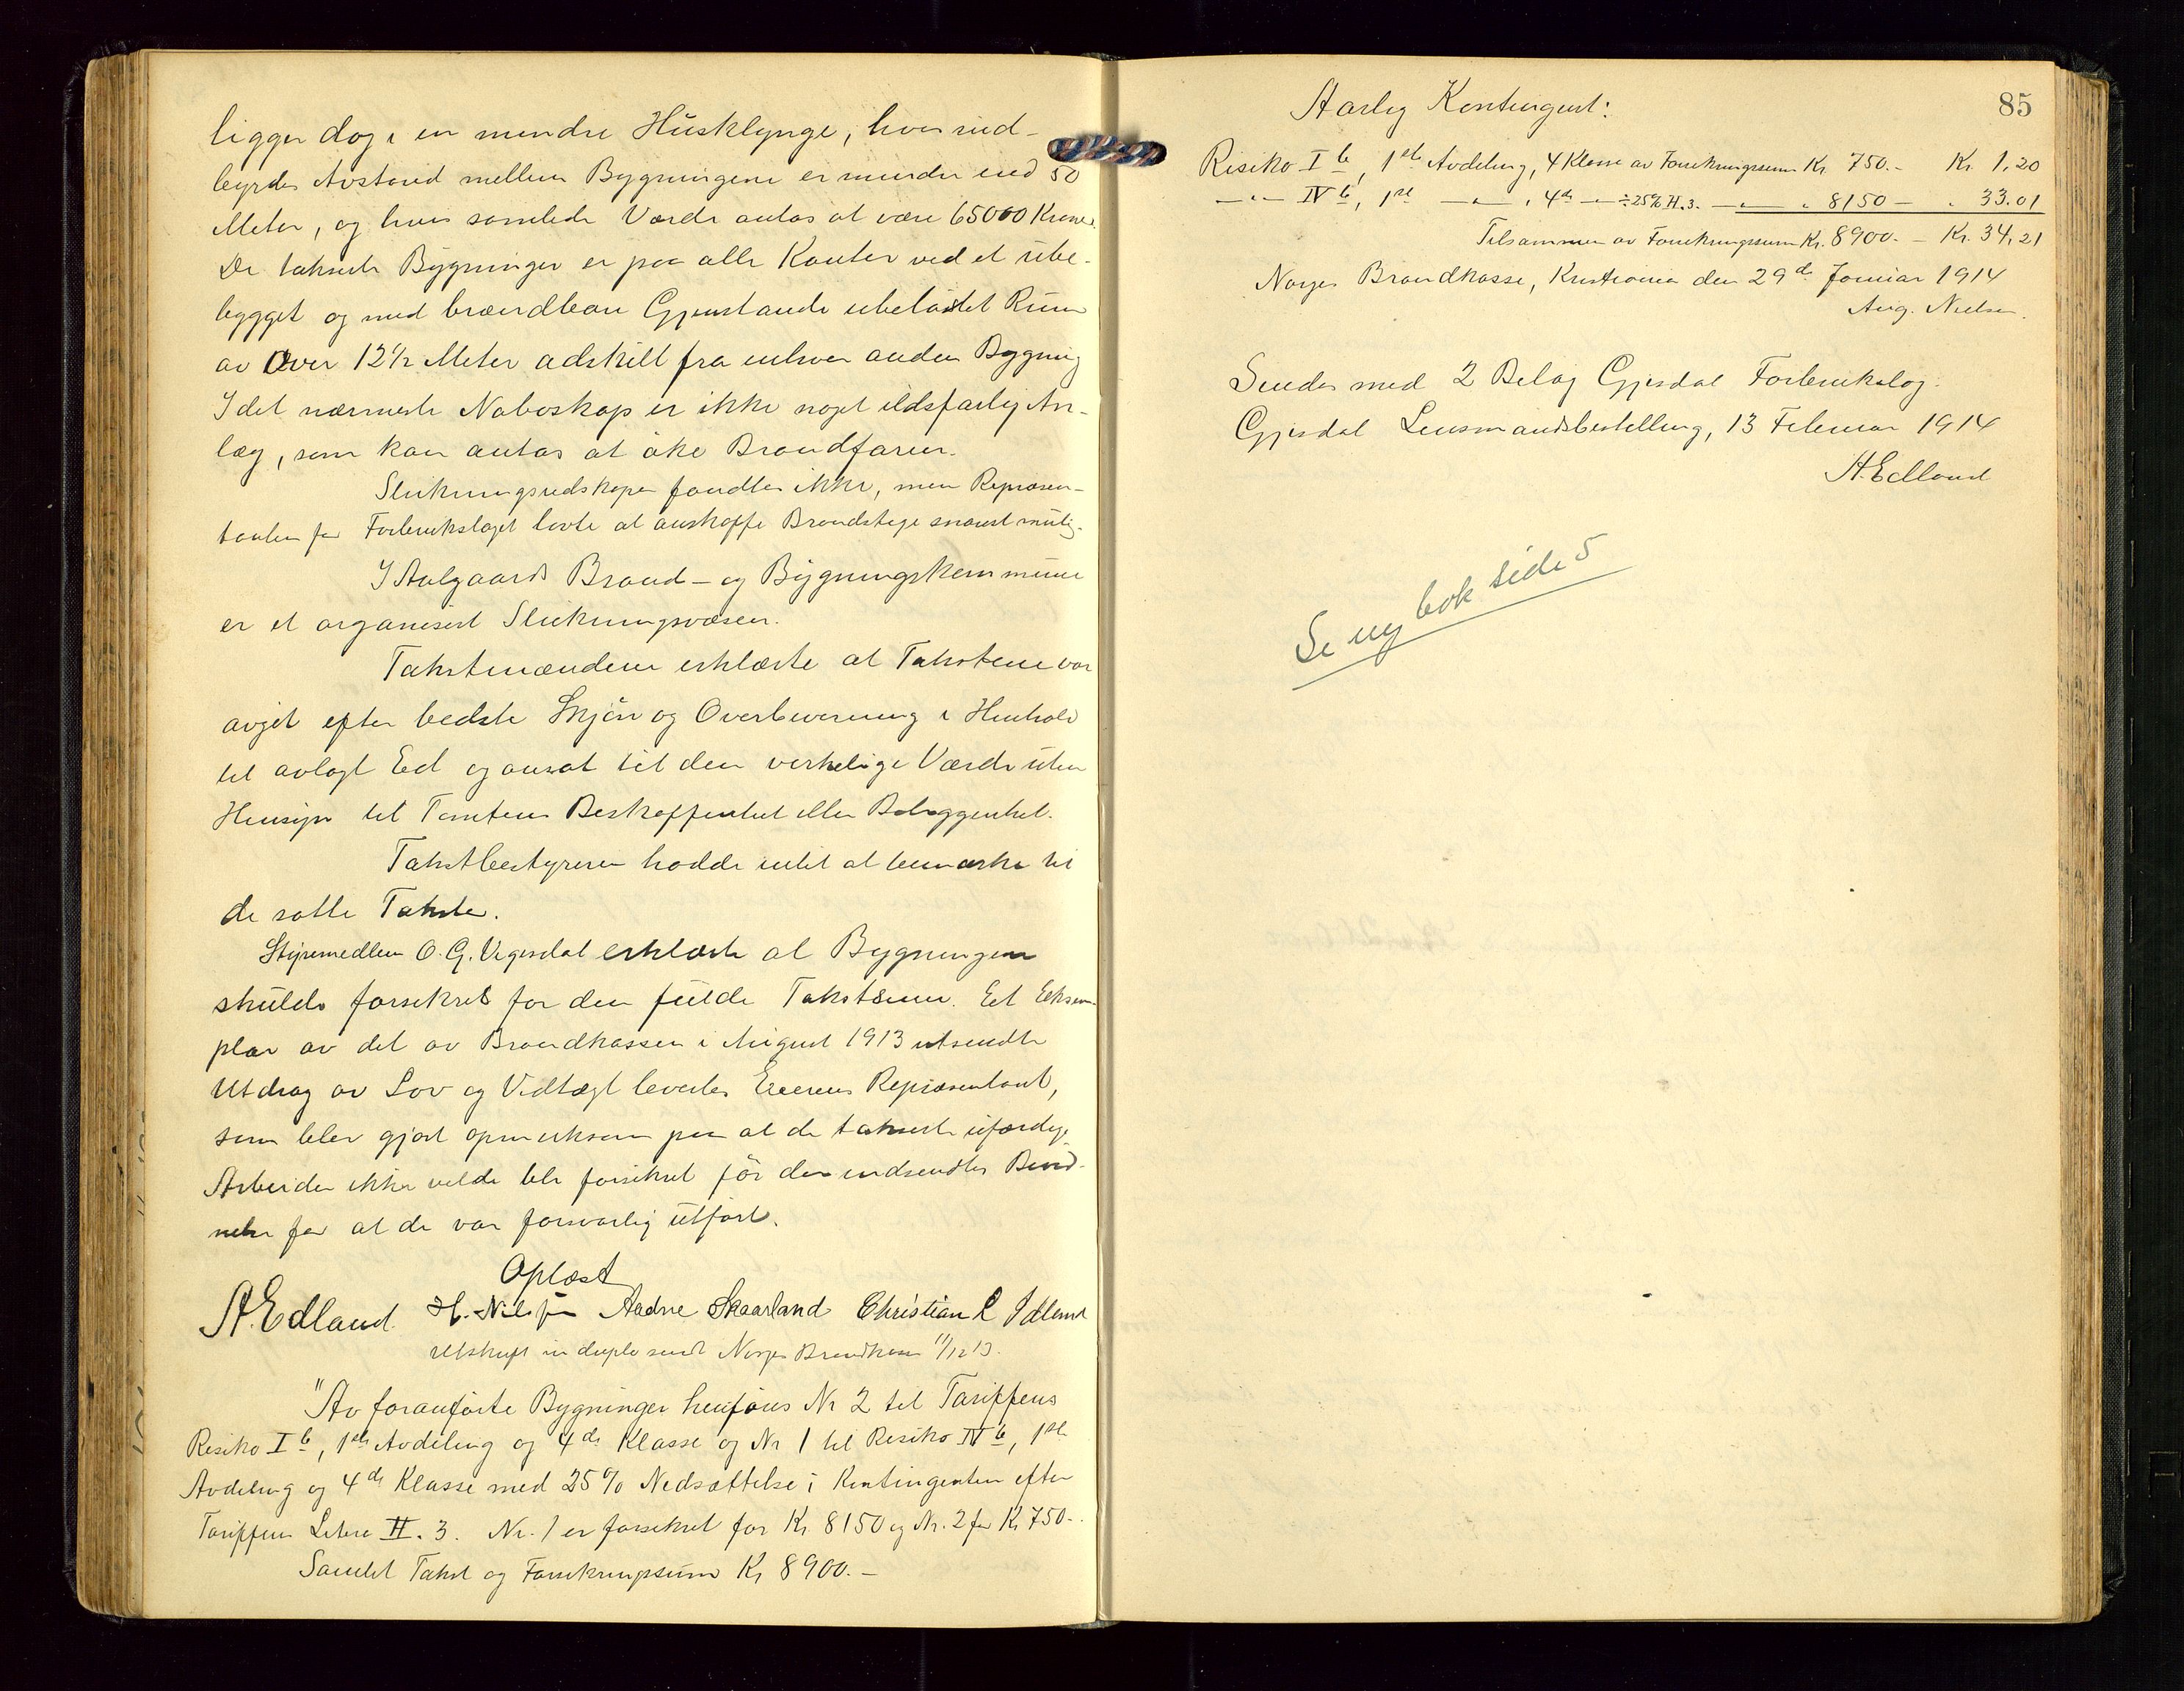 ligger dog i en mindre Husklynge, hvis ind-
byrdes Avstand mellem Bygningene er mindre end 50
Meter, og hvis samlede Værdi antas at være 65000 Kroner.
De takserte Bygninger er paa alle Kanter ved et ube-
bygget og med brændbare Gjenstande ubelastet Rum
av Over 12½ Meter adskilt fra enhver anden Bygning
I det nærmeste Naboskap er ikke noget ildsfarlig An-
læg, som kan antas at øke Brandfaren.
Slukningsredskaper fandtes ikke, men Repræsen-
tanten for Forbrukslaget lovte at anskaffe Brandstige snarest mulig.
I Aalgaards Brand- og Bygningskommune
er et organisert Slukningsvæsen.
Takstmændene erklærte at Takstene var
avgit efter bedste Skjøn og Overbevisning i Henhold
til avlagt Ed og ansat til den virkelige Værdi uten
Hensyn til Tomtens Beskaffenhet eller Beliggenhet.
Takstbestyreren hadde intet at bemærke til
de satte Takster.
Styremedlem O. G. Vegesdal erklærte at Bygningene
skulde forsikres for den fulde Takstsum. Eet Eksem-
plar av det av Brandkassen i August 1913 utsendte
Utdrag av Lov og Vedtægt leverdes Eierens Repræsentant,
som blev gjort opmerksom paa at de takserte uferdige
Arbeider ikke vilde bli forsikret før der indsendtes Bevid-
nelse for at de var forsvarlig utført.
Oplæst
A. Edland. H. Nilsen Aadne Skaarland Christian L Idland
Utskrift in duplo sendt Norges Brandkasse 11/12 13.
"Av foranførte Bygninger henføres Nr 2 til Tariffens
Risiko I b, 1ste Avdeling og 4de Klasse og Nr 1 til Risiko IV b, 1ste
Avdeling og 4de Klasse med 25% Nedsættelse i Kontingenten efter
Tariffens Litera H. 3. Nr. 1 er forsikret for Kr. 8150 og Nr. 2 for Kr 750-.
Samlet Takst og Forsikringssum Kr 8900.-
85
Aarlig Kontingent:
Risiko I b, 1ste Avdeling, 4 Klasse av Forsikringssum Kr. 750.- Kr. 1,20
-"- IV b, 1ste -"-, 4de -"- ÷ 25% H. 3. -"- " 8150 - " 33.01
Tilsammen av Forsikringssum Kr. 8900. - Kr. 34,21
Norges Brandkasse, Kristiania den 29de Januar 1914
Aug. Nielsen.
Sendes med 2 Bilag Gjesdal Forbrukslag.
Gjesdal Lensmandsbestilling, 13 Februar 1914
A. Edland
Se ny bok side 5